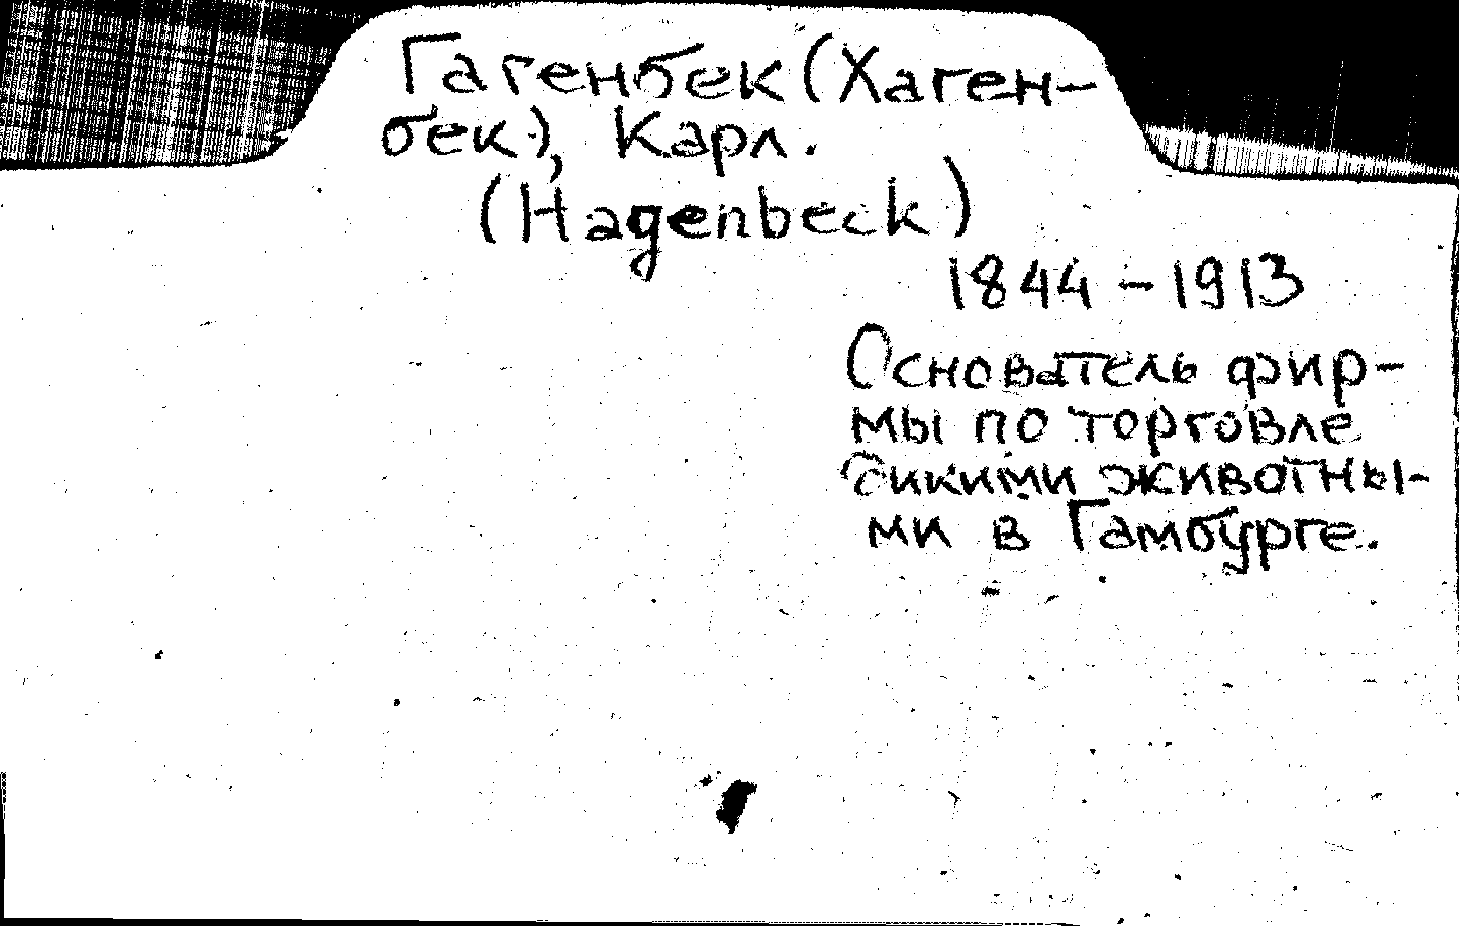 Гагенбек (Хаген-
бек), Карл.
(Hagenbeck)
1844 - 1913
Основатель фир-
мы по торговле
дикими животны-
ми в Гамбурге.